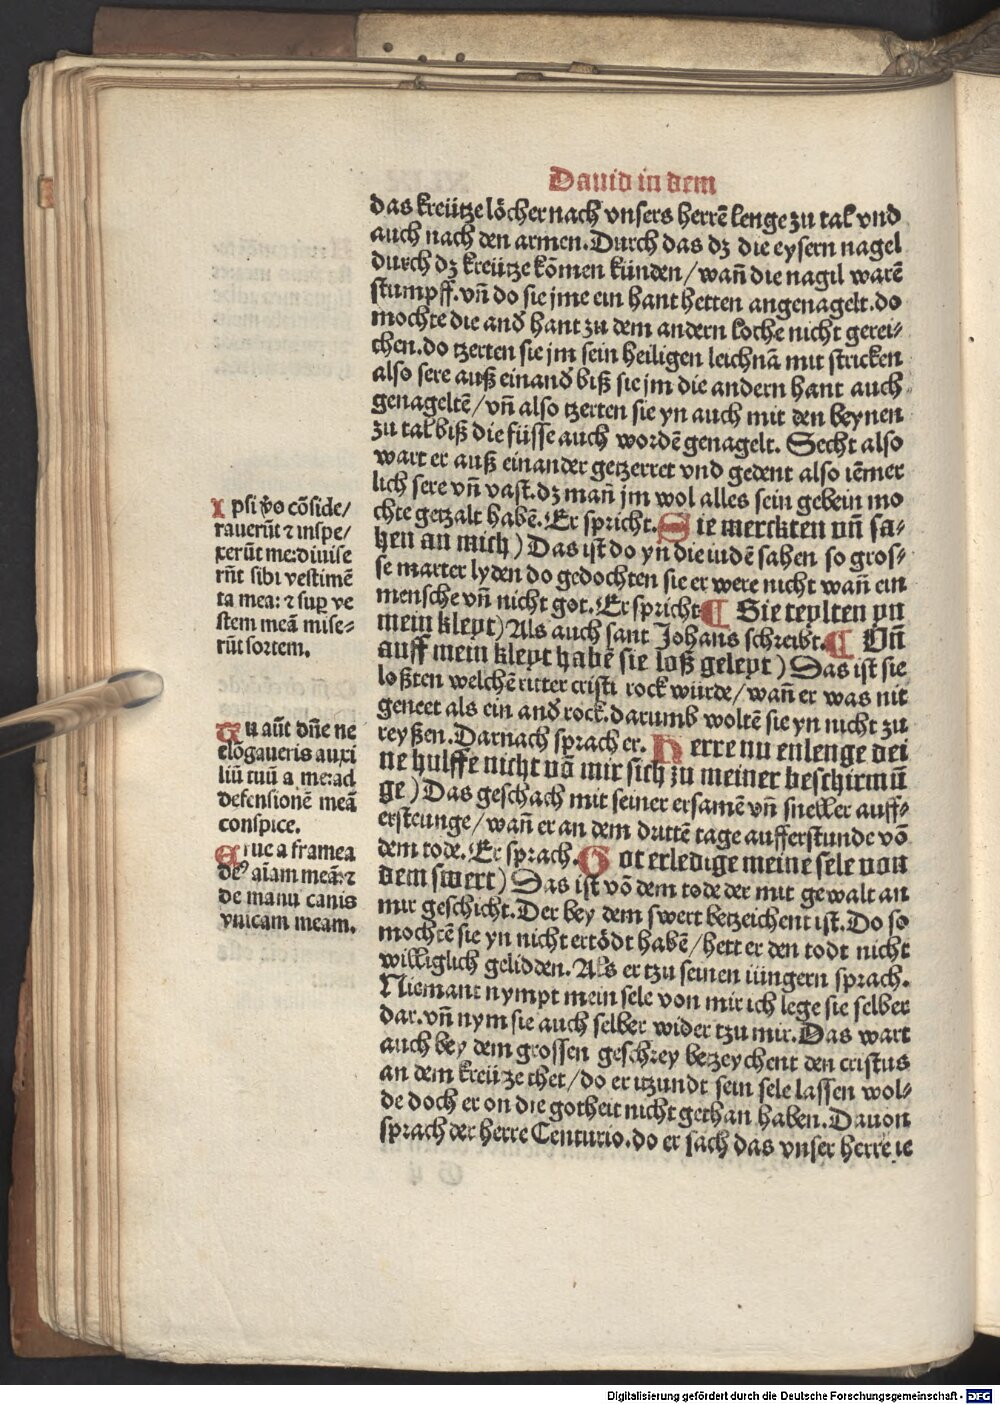 Dauid in dem
das kreütze löcher nach vnsers herrē lenge zu tal vnd
auch nach den armen. Durch das dz die eysern nagel
durch dz kreütze kōmen künden / wan̄ die nagil warē
stumpff. vn̄ do sie jme ein hant hetten angenagelt. do
mochte die and̄ hant zu dem andern loche nicht gerei⸗
chen. do tzerten sie jm sein heiligen leichnā mit stricken
also sere auß einand̄ biß sie jm die andern hant auch
genageltē / vn̄ also tzerten sie yn auch mit den beynen
zu tal biß die füsse auch wordē genagelt. Secht also
wart er auß einander getzerret vnd gedent also iēmer
lich sere vn̄ vast. dz man̄ jm wol alles sein gebein mo
chte getzalt habē. Er spricht. Sie merckten vn̄ sa⸗
hen an mich) Das ist do yn die iudē sahen so gros⸗
se marter lyden do gedochten sie er were nicht wan̄ ein
mensche vn̄ nicht got. Er spricht ¶ Sie teylten yn
mein kleyt) Als auch sant Johans schreibt. ¶ Vn̄
auff mein kleyt habē sie loß geleyt) Das ist sie
loßten welchē ritter cristi rock würde / wan̄ er was nit
geneet als ein and̄ rock. darumb woltē sie yn nicht zu
reyßen. Darnach sprach er. Herre nu enlenge dei
ne hulffe nicht vō mir sich zu meiner beschirmū
ge) Das geschach mit seiner ersamē vn̄ sneller auff⸗
ersteunge / wan̄ er an dem drittē tage aufferstunde vō
dem tode. Er sprach. Got erledige meine sele von
dem swert) Das ist vō dem tode der mit gewalt an
mir geschicht. Der bey dem swert betzeichent ist. Do so
mochtē sie yn nicht ertödt habē / hett er den todt nicht
williglich gelidden. Als er tzu seinen iüngern sprach.
Niemant nympt mein sele von mir ich lege sie selber
dar. vn̄ nym sie auch selber wider tzu mir. Das wart
auch bey dem grossen geschrey betzeychent den cristus
an dem kreütze thet / do er itzundt sein sele lassen wol⸗
de doch er on die gotheit nicht gethan haben. Dauon
sprach der herre Centurio. do er sach das vnser herre ie
Ipsi v̄o cōside/
rauerūt ⁊ inspe/
xerūt me: diuise
rn̄t sibi vestimē
ta mea: ⁊ suꝑ ve
stem meā mise⸗
rūt sortem.
Tu aūt dn̄e ne
elōgaueris auxi
liū tuū a me: ad
defensionē meā
conspice.
Erue a framea
deꝰ aīam meā: ⁊
de manu canis
vnicam meam.
Digitalisierung gefördert durch die Deutsche Forschungsgemeinschaft - DFG